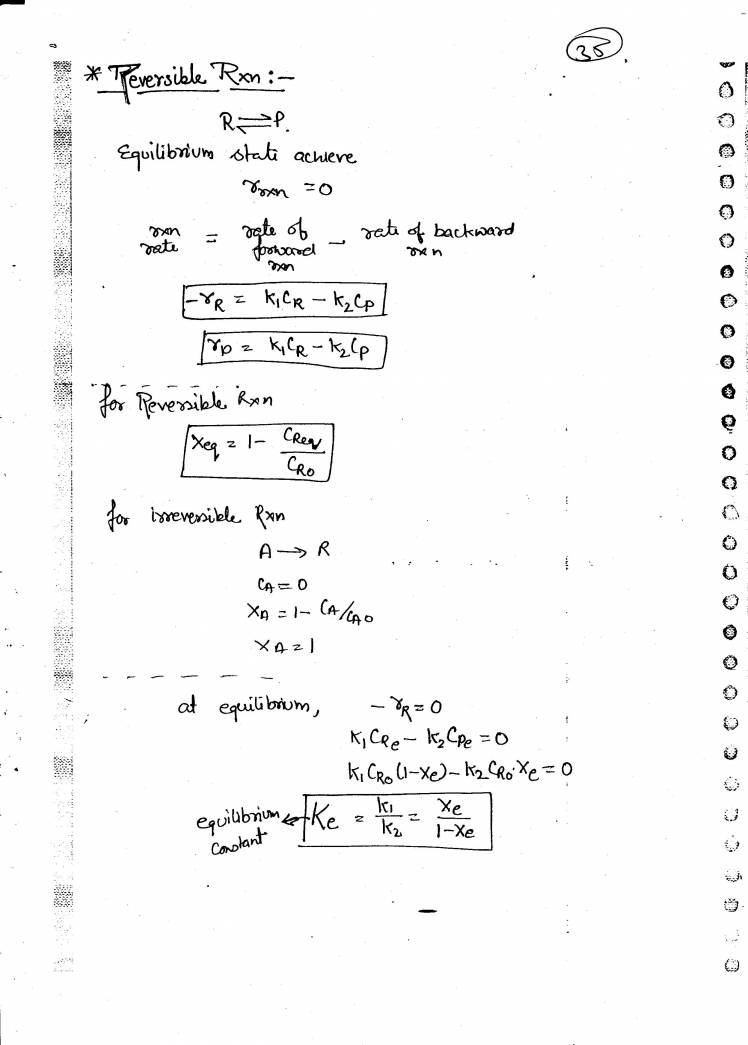 35
* Reversible Rxn :-
R ⇌ P.
Equilibrium state achieve
r_rxn = 0
rxn rate = rate of forward rxn - rate of backward rxn
-r_R = k₁C_R - k₂C_P
r_P = k₁C_R - k₂C_P
for Reversible Rxn
X_eq = 1 - C_Req / C_R0
for irreversible Rxn
A → R
C_A = 0
X_A = 1 - C_A/C_A0
X_A = 1
at equilibrium, -r_R = 0
k₁C_Re - k₂C_Pe = 0
k₁C_R0(1-Xe) - k₂C_R0.Xe = 0
equilibrium constant ← Ke = k₁/k₂ = Xe/1-Xe